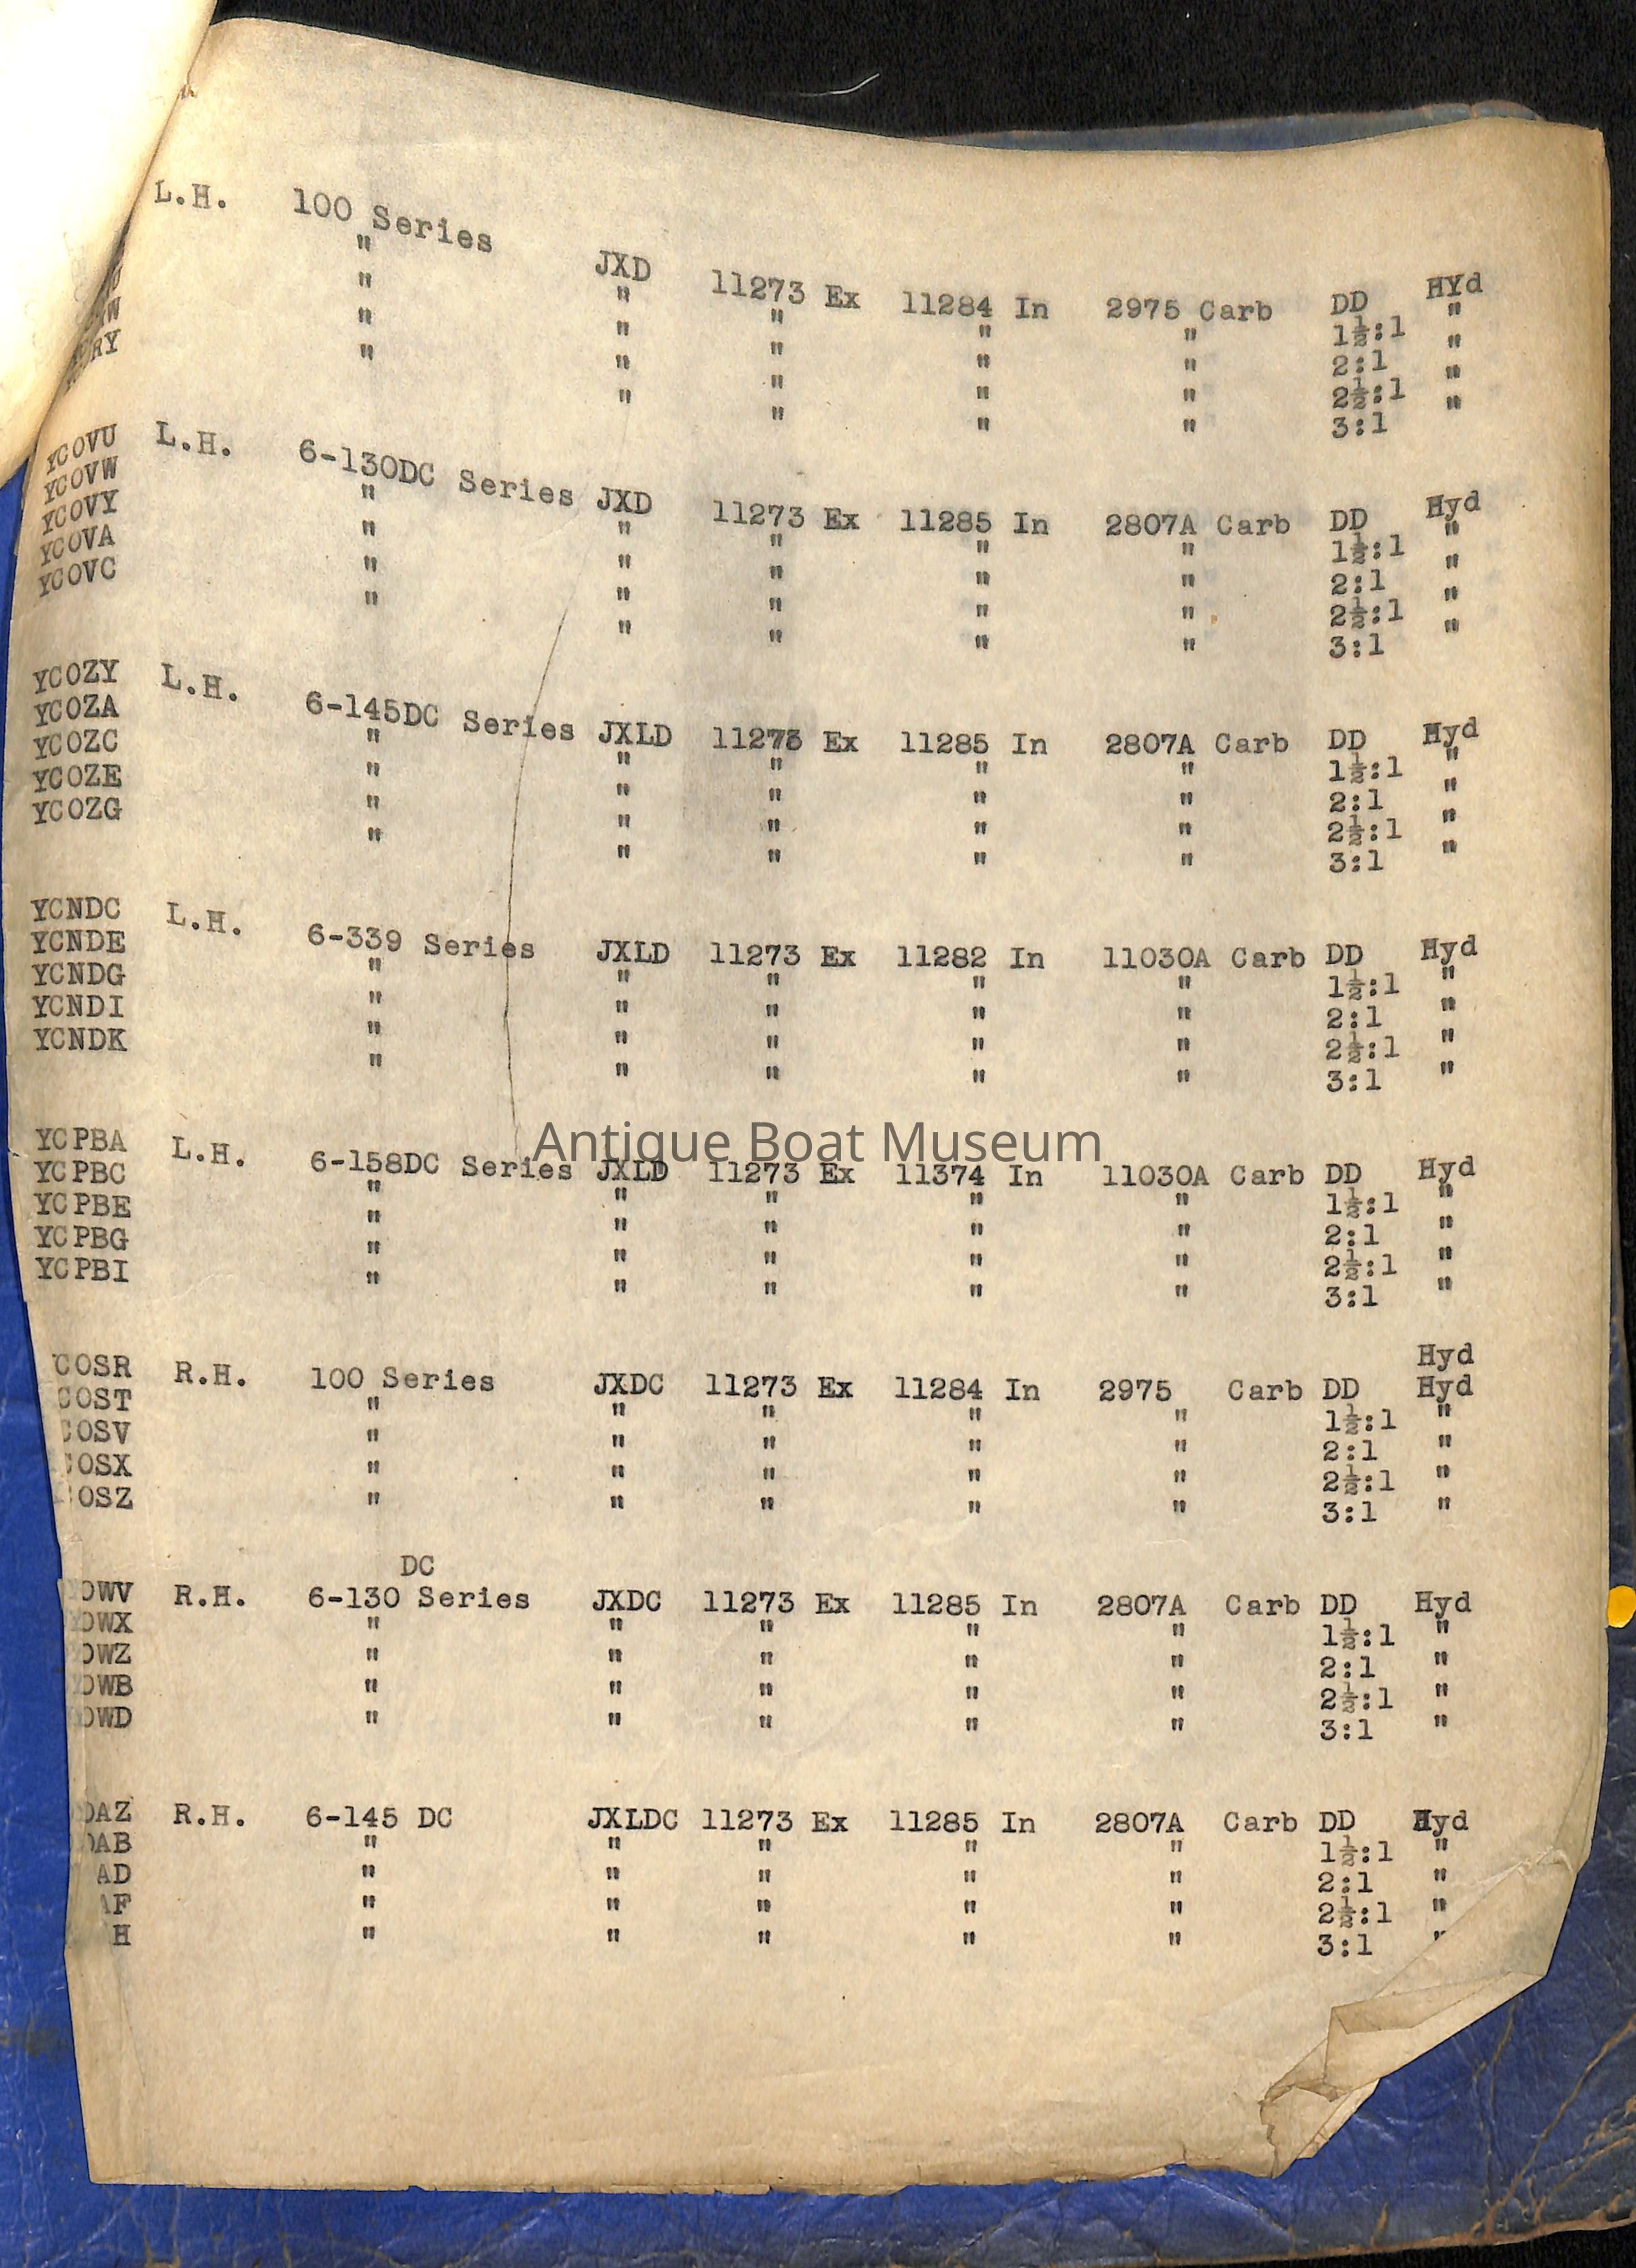 L.H. 100 Series JXD 11273 Ex 11284 In 2975 Carb DD HYd
" " " " " 1½:1 "
" " " " " 2:1 "
" " " " " 2½:1 "
RY " " " " " 3:1 "
YCOVU L.H. 6-130DC Series JXD 11273 Ex 11285 In 2807A Carb DD Hyd
YCOVW " " " " " 1½:1 "
YCOVY " " " " " 2:1 "
YCOVA " " " " " 2½:1 "
YCOVC " " " " " 3:1 "
YCOZY L.H. 6-145DC Series JXLD 11273 Ex 11285 In 2807A Carb DD Hyd
YCOZA " " " " " 1½:1 "
YCOZC " " " " " 2:1 "
YCOZE " " " " " 2½:1 "
YCOZG " " " " " 3:1 "
YCNDC L.H. 6-339 Series JXLD 11273 Ex 11282 In 11030A Carb DD Hyd
YCNDE " " " " " 1½:1 "
YCNDG " " " " " 2:1 "
YCNDI " " " " " 2½:1 "
YCNDK " " " " " 3:1 "
Antique Boat Museum
YCPBA L.H. 6-158DC Series JXLD 11273 Ex 11374 In 11030A Carb DD Hyd
YCPBC " " " " " 1½:1 "
YCPBE " " " " " 2:1 "
YCPBG " " " " " 2½:1 "
YCPBI " " " " " 3:1 "
Hyd
COSR R.H. 100 Series JXDC 11273 Ex 11284 In 2975 Carb DD Hyd
COST " " " " " 1½:1 "
COSV " " " " " 2:1 "
OSX " " " " " 2½:1 "
OSZ " " " " " 3:1 "
DC
OWV R.H. 6-130 Series JXDC 11273 Ex 11285 In 2807A Carb DD Hyd
OWX " " " " " 1½:1 "
OWZ " " " " " 2:1 "
OWB " " " " " 2½:1 "
OWD " " " " " 3:1 "
OAZ R.H. 6-145 DC JXLDC 11273 Ex 11285 In 2807A Carb DD Hyd
OAB " " " " " 1½:1 "
AD " " " " " 2:1 "
AF " " " " " 2½:1 "
H " " " " " 3:1 "